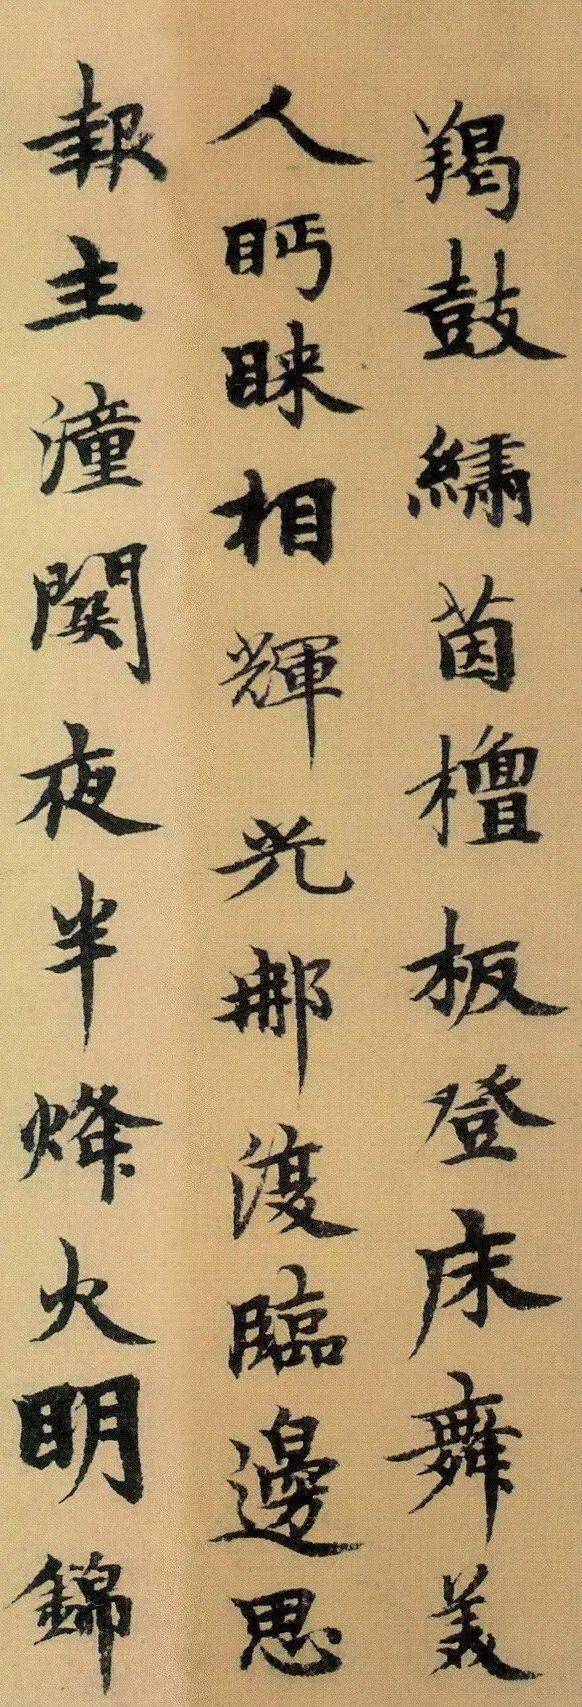 羯鼓繡茵檀板登床舞美
人眄睞相輝光那復臨邊思
報主潼關夜半烽火明錦